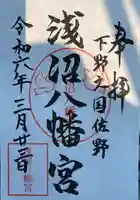 奉拝
下野之国佐野
浅沼八幡宮
令和六年三月廿三日